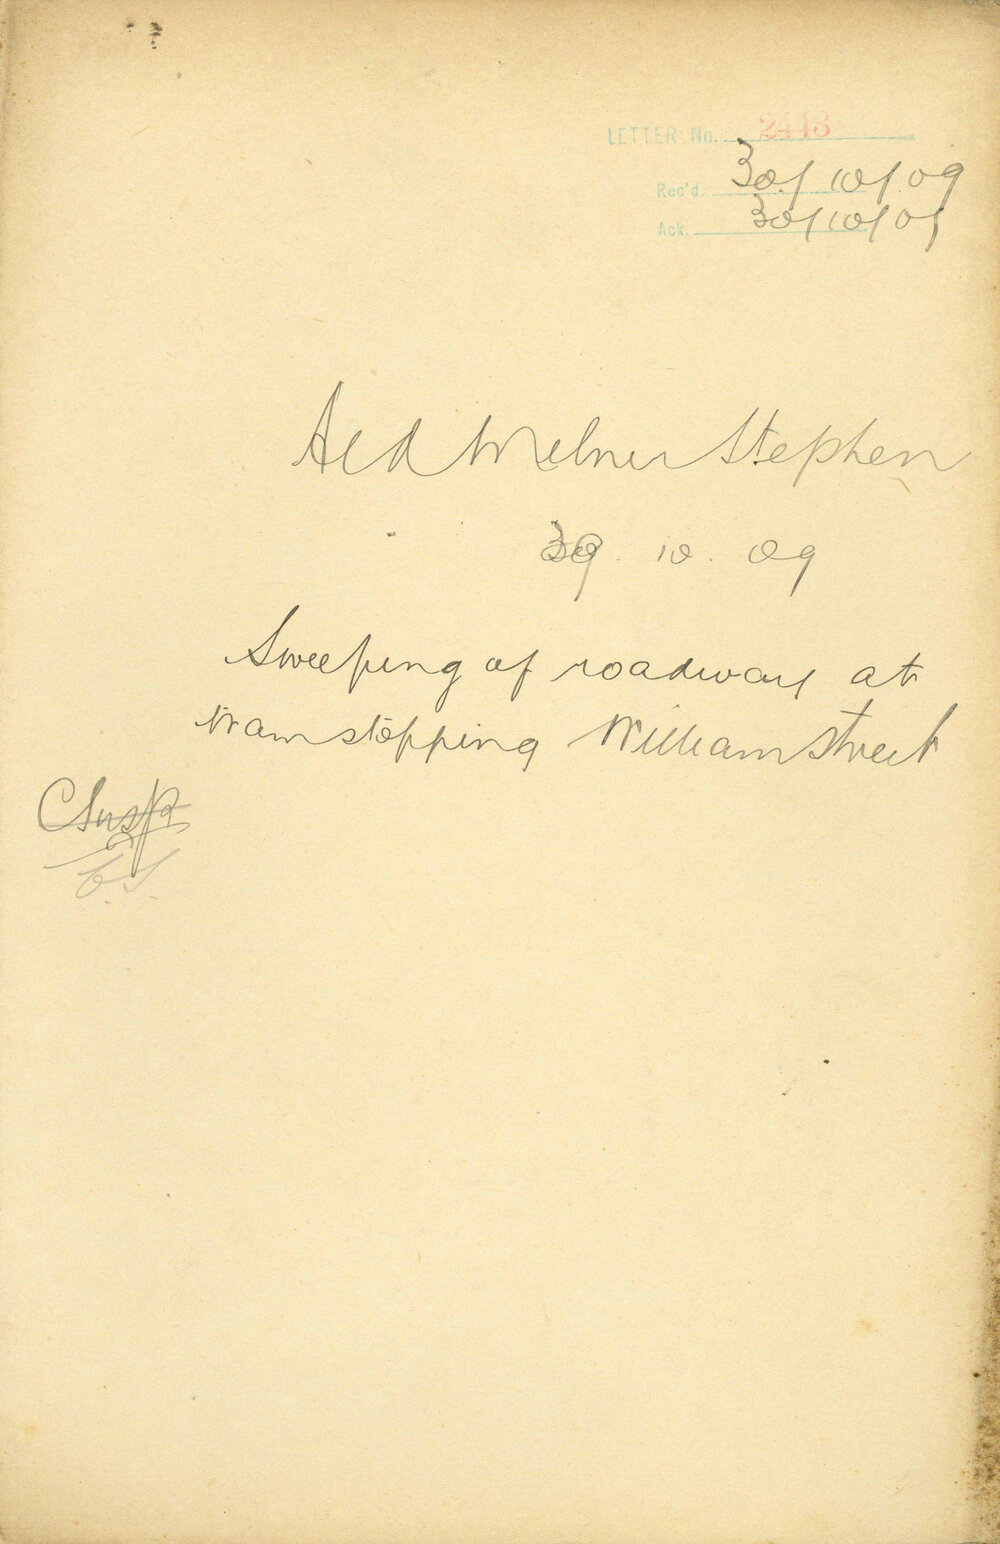 LETTER No. 2443
Rec'd. 30/10/09
Ack. 30/10/09
Ald Milner Stephen
10. 09
Sweeping of roadway at
tram stopping William Street
C Insp
C.S.